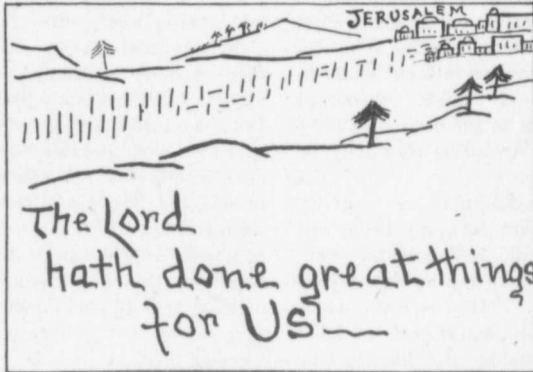 JERUSALEM
The Lord
hath done great things
for Us